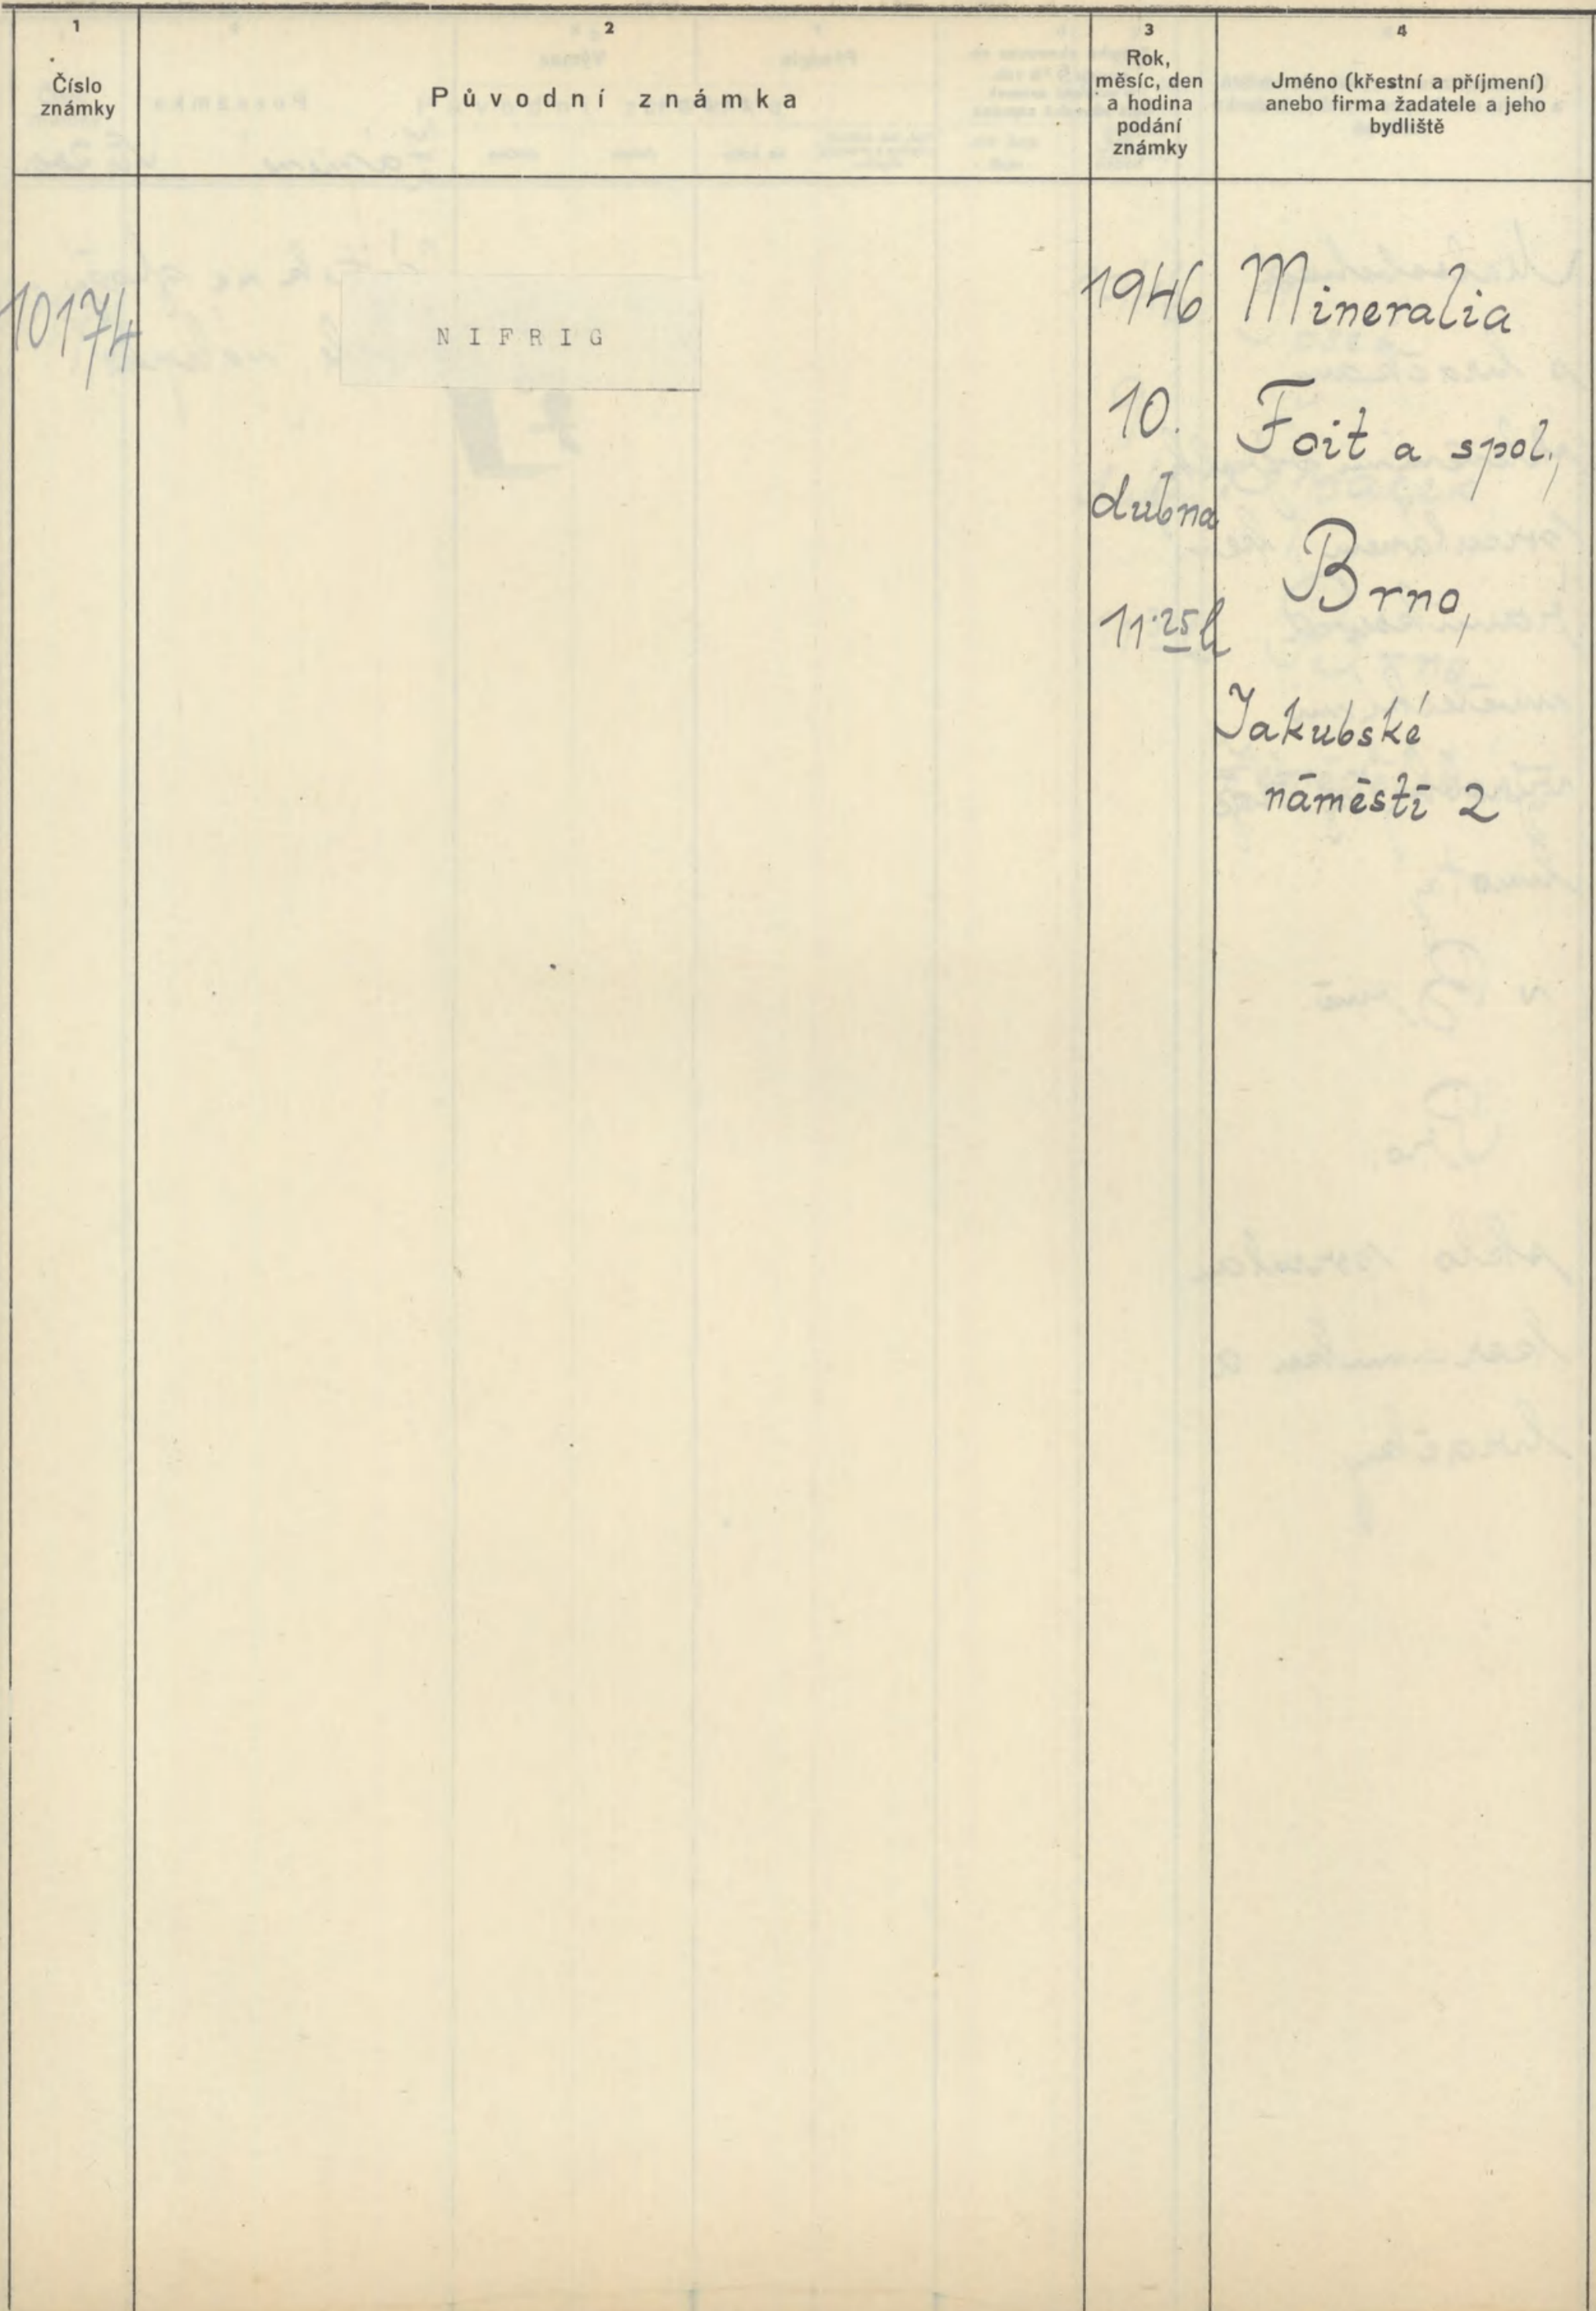 1
Číslo
známky
2
Původní známka
3
Rok,
měsíc, den
a hodina
podání
známky
4
Jméno (křestní a příjmení)
anebo firma žadatele a jeho
bydliště
10174
NIFRIG
1946
10.
dubna
11·25 h
Mineralia
Foit a spol.,
Brno,
Jakubské
náměstí 2